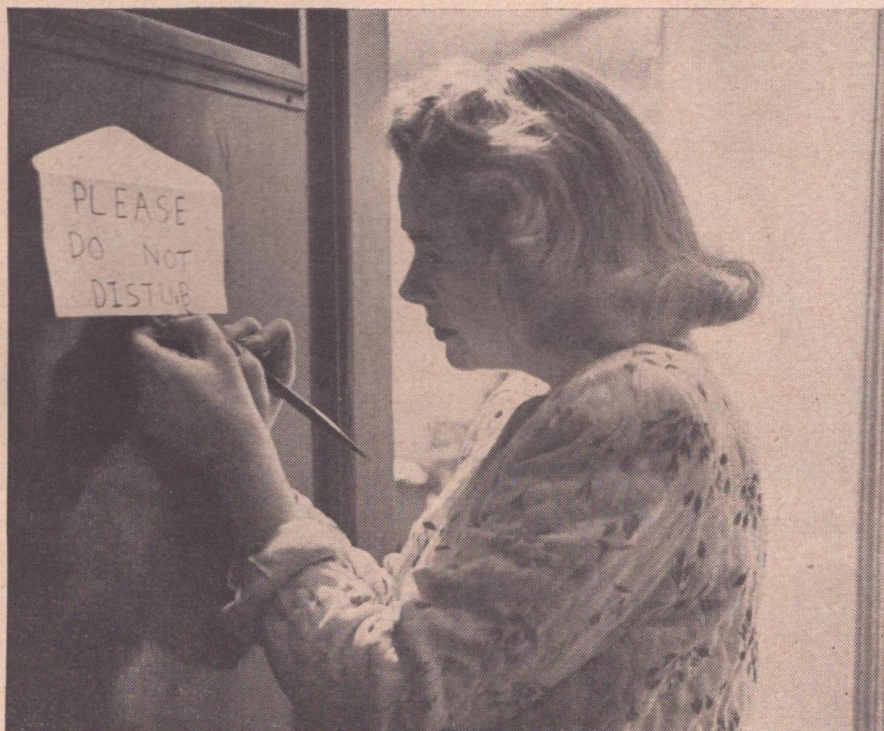 PLEASE
DO NOT
DISTURB